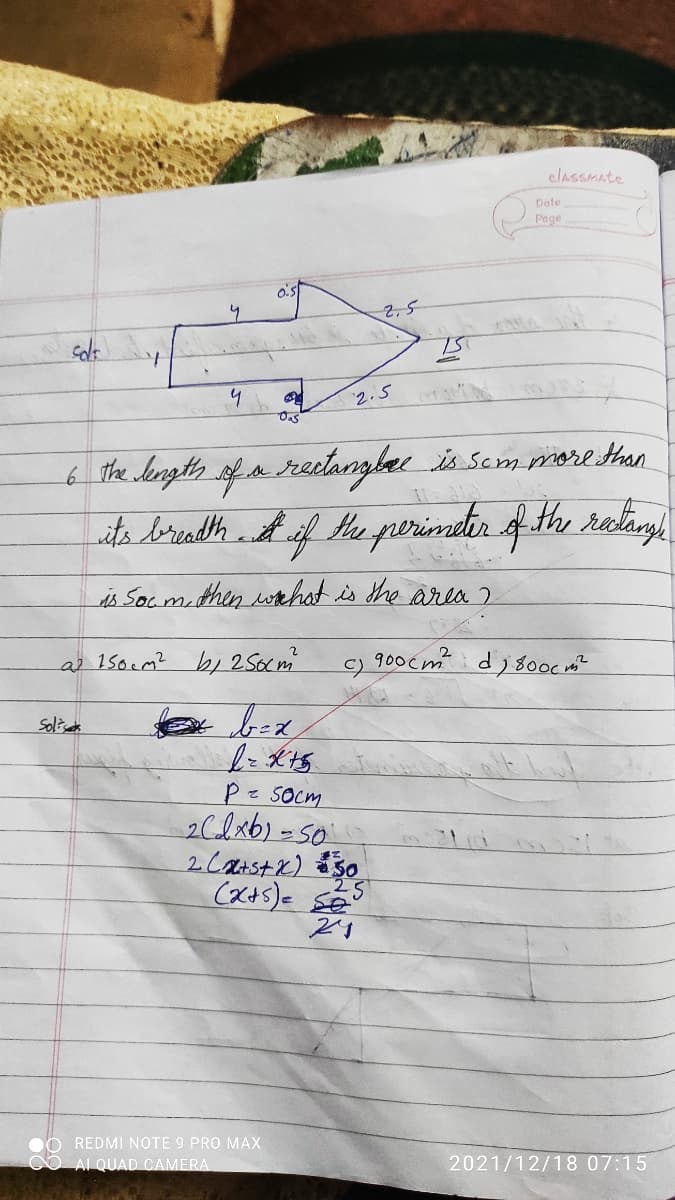 classmate
Date
Page
0.5
4
2.5
Sol:
1
15
4
2.5
0.5
6 the length of a rectangle is 5cm more than
its breadth. if the perimeter of the rectangle
is 50cm, then what is the area?
a) 150cm² b) 250cm² c) 900cm² d) 800cm²
Sol:
b=x
l=x+5
P = 50cm
2(l×b) = 50
2(x+5+x) = 50
(x+5)= 50 25
2
REDMI NOTE 9 PRO MAX
AI QUAD CAMERA
2021/12/18 07:15